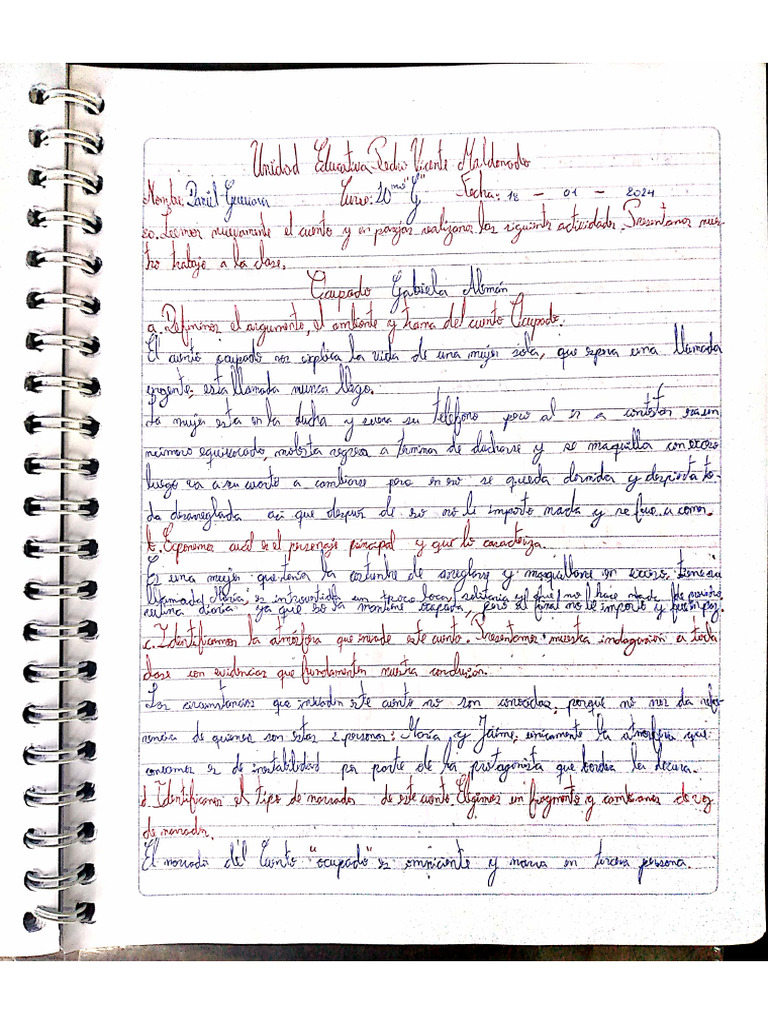 Unidad Educativa Pedro Vicente Maldonado
Nombre: Daniel Guevara Curso: 10mo "G" Fecha: 18 - 01 - 2024
Leemos nuevamente el cuento y en parejas realizamos las siguientes actividades. Presentamos nues-
tro trabajo a la clase.
Ocupado Gabriela Alemán
a. Definimos el argumento, el ambiente y trama del cuento Ocupado.
El cuento ocupado nos explica la vida de una mujer sola, que espera una llamada
urgente, esta llamada nunca llego.
La mujer esta en la ducha y suena su teléfono pero al ir a contestar era un
número equivocado, molesta regresa a terminar de ducharse y se maquilla con exceso
luego va a su cuarto a cambiarse pero en eso se queda dormida y despierta to-
da desarreglada asi que despues de eso no le importo nada y se fue a comer.
b. Exponemos cuál es el personaje principal y que lo caracteriza.
Es una mujer que tenia la costumbre de arreglarse y maquillarse en exceso, tiene su
llamada María, es introvertida un poco loca, solitaria y que no le hace nada de
rutina diaria ya que eso la mantiene ocupada, pero al final no le importo y fue
c. Identificamos la atmósfera que invade este cuento. Presentamos nuestra indagación a toda
clase con evidencias que fundamenten nuestra conclusión.
Las circunstancias que invaden este cuento no son conocidas, porque no nos da refe-
rencia de quienes son estas 2 personas: María y Jaime, unicamente la atmósfera que
conocemos es de inestabilidad por parte de la protagonista que bordea la locura.
d. Identificamos el tipo de narrador de este cuento. Elegimos un fragmento y cambiamos de voz
de narrador.
El narrador del Cuento "ocupado" es omniciente y narra en tercera persona.